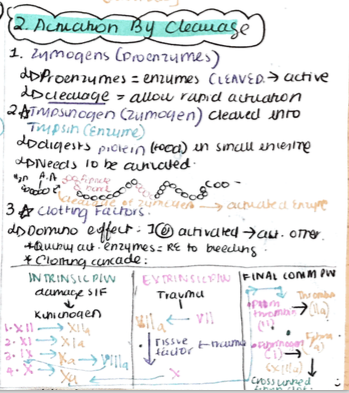 2. Activation By Cleavage
1. Zymogens (Proenzymes)
Proenzymes = enzymes CLEAVED → active
cleavage = allow rapid activation
2. Trypsinogen (zymogen) cleaved into
Trypsin (Enzyme)
digests protein (food) in small intestine
Needs to be activated.
COO-
cleavage of zymogen → activated enzyme
3 Clotting Factors.
Domino effect - activated → act. other.
to bleeding.
* Clotting cascade:
INTRINSIC P/W
EXTRINSIC P/W
FINAL COMM PW
damage S/F
Kininogen
1. XII → XIIa
2. XI → XIa
3. IX →
4. X → Xa
Xa
VIIIa
Trauma
VIIa ← VII
Tissue factor ← trauma
X
thrombin
(II)
(IIa)
Fibrinogen
(I)
crosslinked